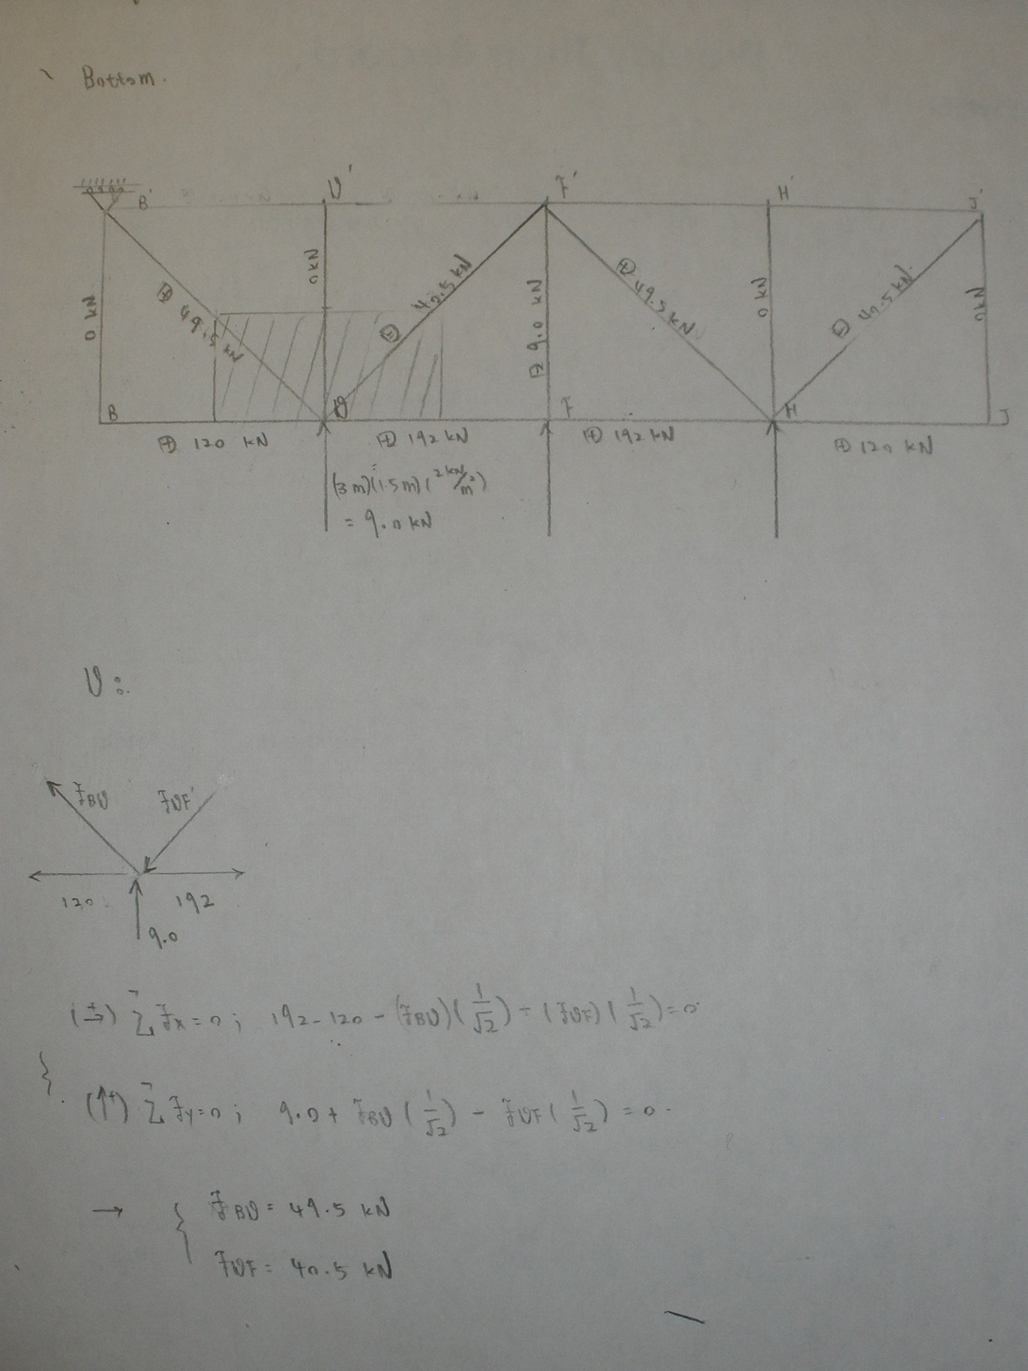 Bottom.
B' D' F' H' J'
0 kN
⊕ 49.5 kN
0 kN
⊖ 40.5 kN
⊕ 9.0 kN
⊕ 49.5 kN
0 kN
⊖ 40.5 kN
0 kN
B D F H J
⊕ 120 kN ⊕ 192 kN ⊕ 192 kN ⊕ 120 kN
(3 m)(1.5 m)(2 kN/m²)
= 9.0 kN
D:
F_BD F_DF'
120 192
9.0
(→+) Σ Fx = 0 ; 192 - 120 - (F_BD)(1/√2) - (F_DF)(1/√2) = 0
(↑+) Σ Fy = 0 ; 9.0 + F_BD (1/√2) - F_DF (1/√2) = 0.
→ { F_BD = 49.5 kN
F_DF = 40.5 kN